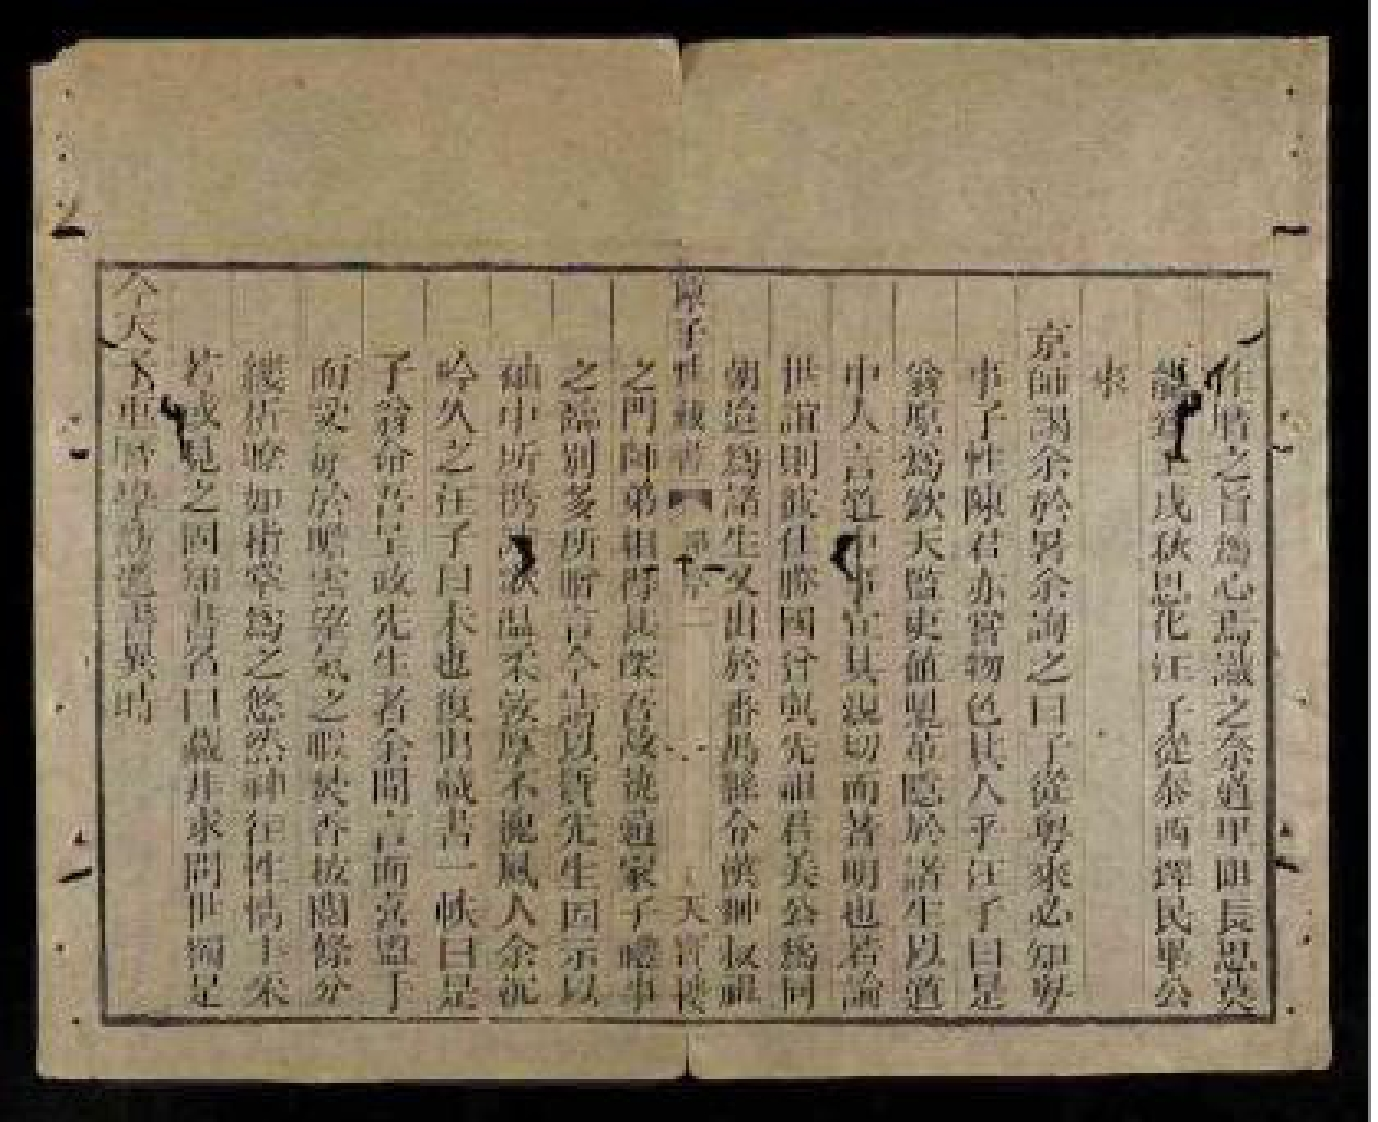 作曆之旨為心焉識之奈道里阻長思莫
戌秋恩化汪子從泰西譯民畢公
來
京師謁余於署余詢之曰子從粵來必知粵
事子性陳君亦嘗物色其人乎汪子曰是
翁原為欽天監吏值鼎革隱於諸生以道
中人言道中事宜其親切而著明也若論
世誼則歆仕勝國曾與先祖君美公為同
朝迨為諸生又出於番禺縣令漢翀叔祖
陳子性藏書 序 二 天寶樓
之門師弟相得甚深吾故執通家子禮事
之臨別多所贈言今請以質先生因示以
袖中所携詩歌温柔敦厚不愧風人余沉
吟久之汪子曰未也復出藏書一帙曰是
子翁命吾呈政先生者余聞言而喜盥手
而受每於瞻雲望氣之暇焚香披閱條分
縷析瞭如指掌為之悠然神往性情丰采
若或見之因知書名曰藏非求問世獨是
今天下車曆學訪遺書異時